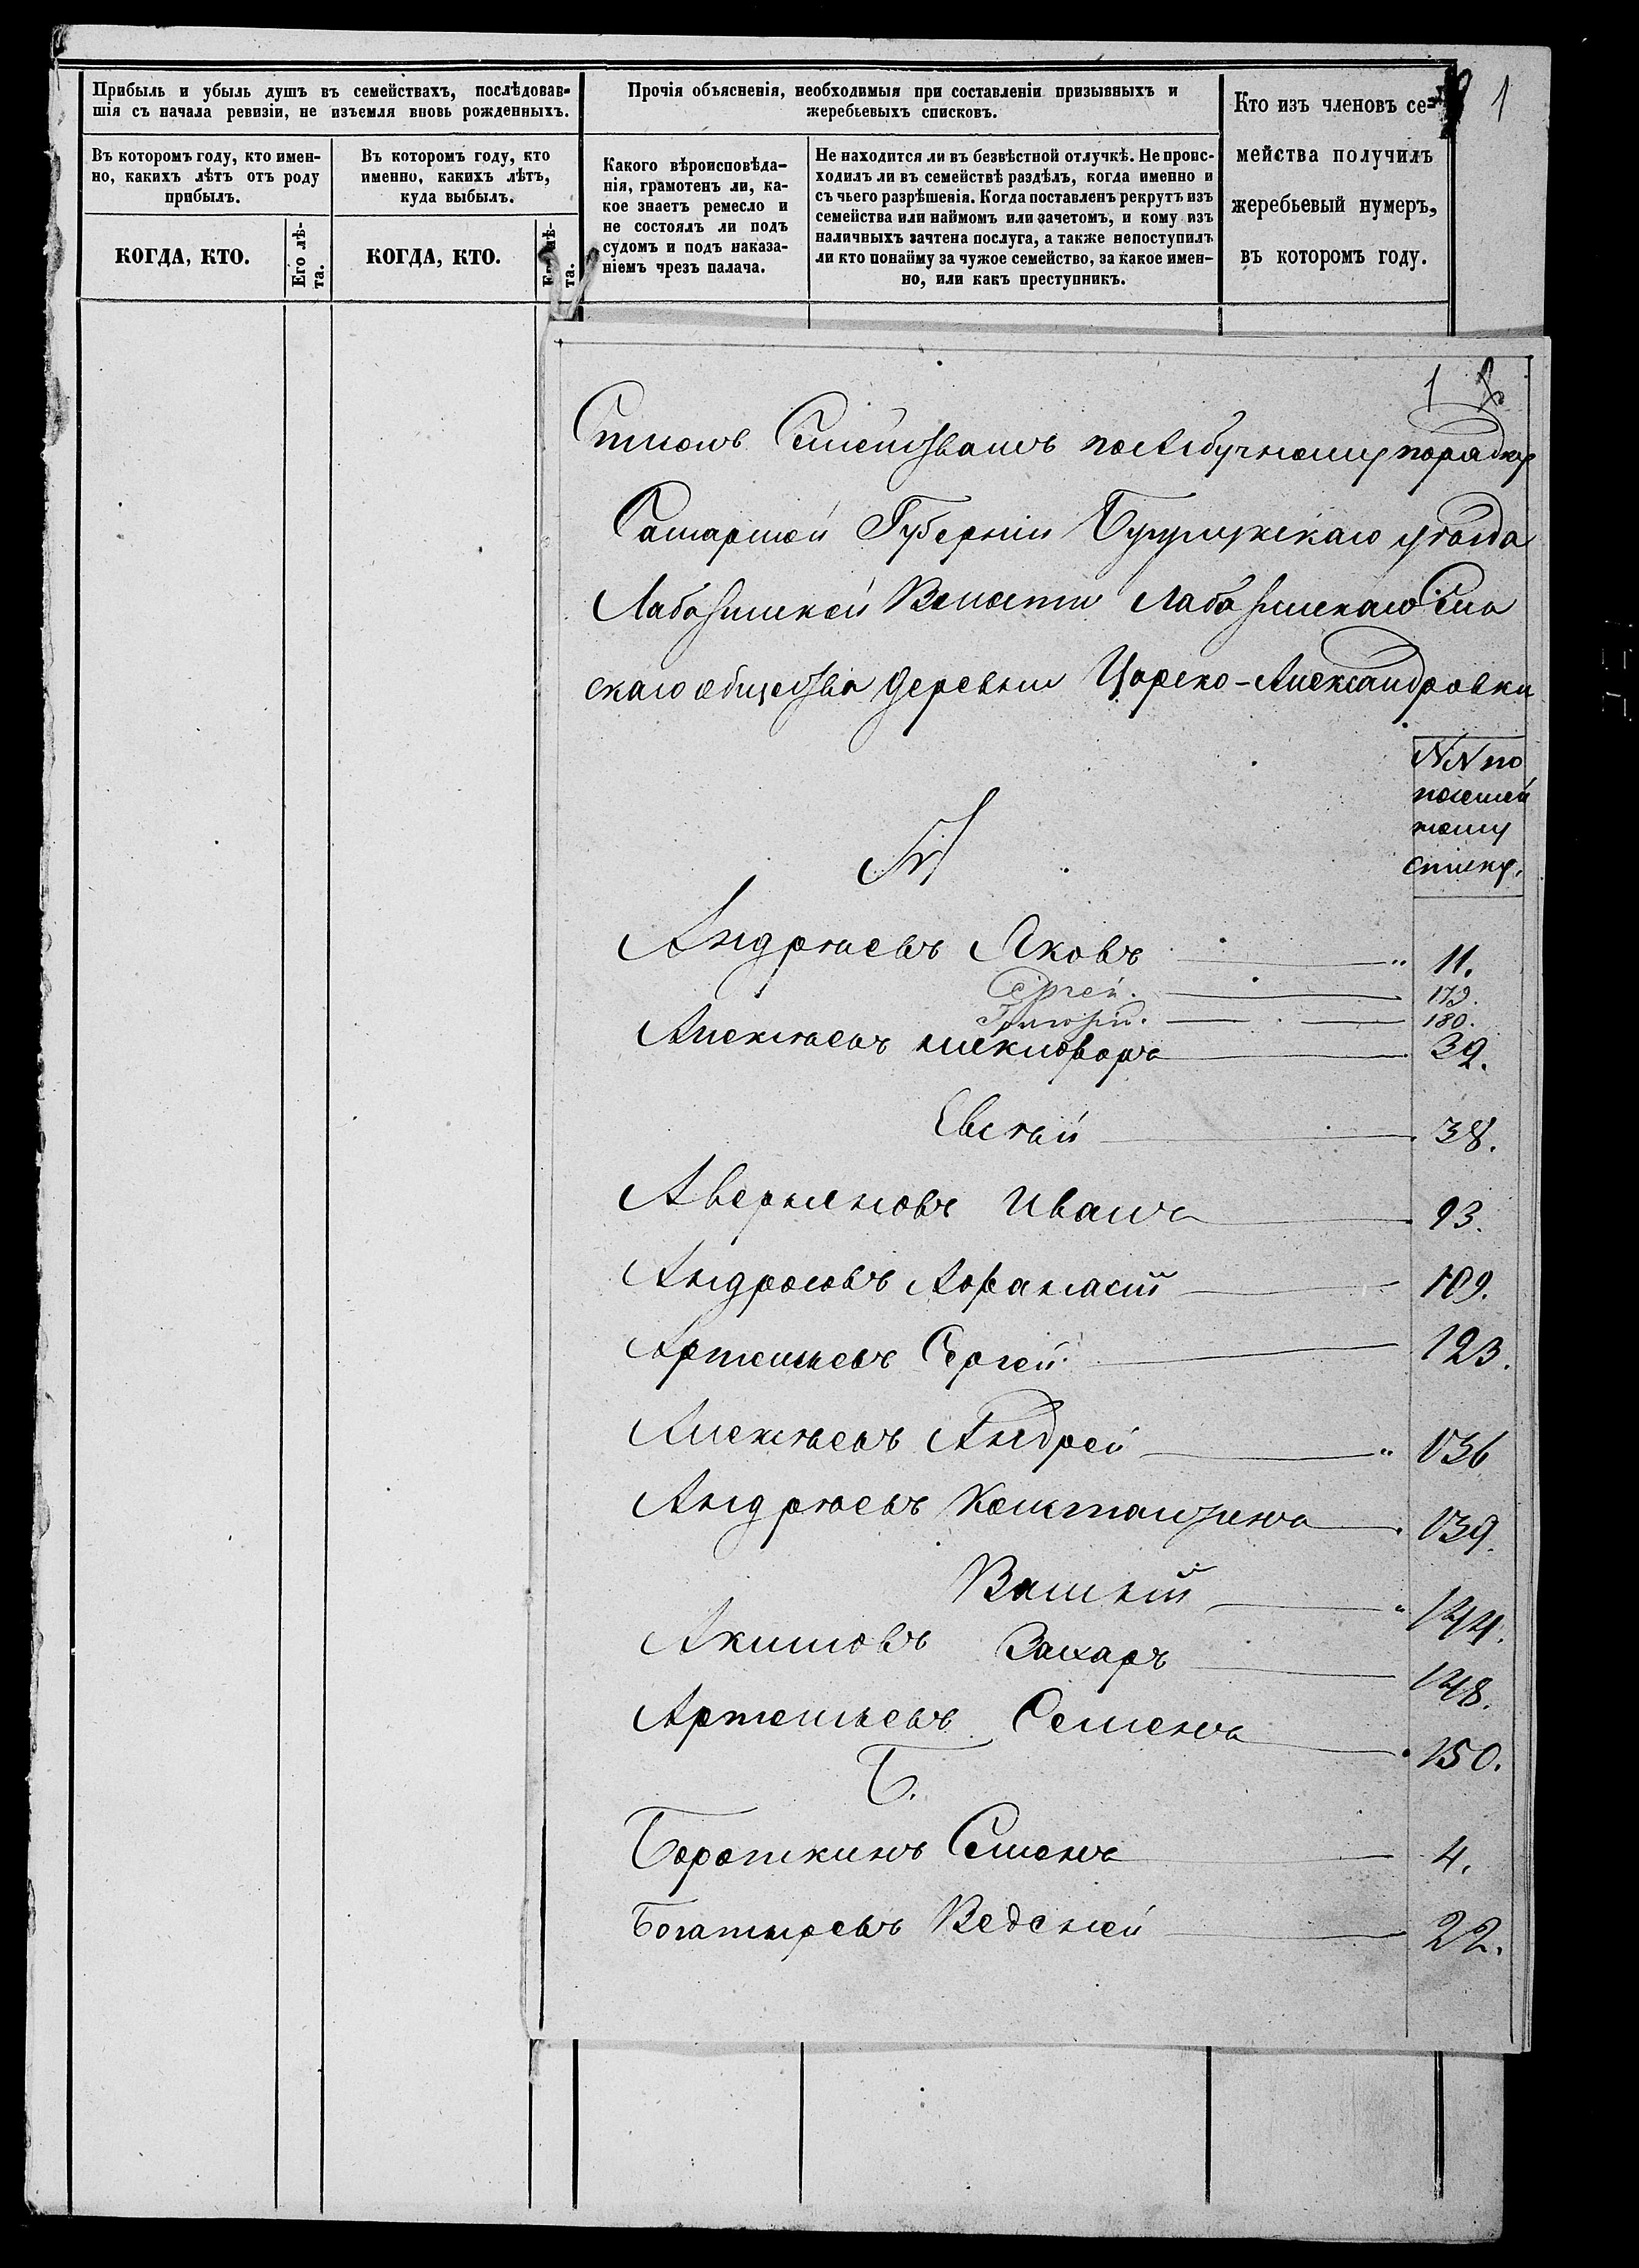 Прибыль и убыль душъ въ семействахъ, послѣдовав-
шія съ начала ревизіи, не изъемля вновь рожденныхъ.
Въ которомъ году, кто имен-
но, какихъ лѣтъ отъ роду
прибылъ.
Въ которомъ году, кто
именно, какихъ лѣтъ,
куда выбылъ.
КОГДА, КТО.
Его лѣ-
та.
КОГДА, КТО.
та.
Прочія объясненія, необходимыя при составленіи призывныхъ и
жеребьевыхъ списковъ.
Какого вѣроисповѣда-
нія, грамотенъ ли, ка-
кое знаетъ ремесло и
не состоялъ ли подъ
судомъ и подъ наказа-
ніемъ чрезъ палача.
Не находится ли въ безвѣстной отлучкѣ. Не проис-
ходилъ ли въ семействѣ раздѣлъ, когда именно и
съ чьего разрѣшенія. Когда поставленъ рекрутъ изъ
семейства или наймомъ или зачетомъ, и кому изъ
наличныхъ зачтена послуга, а также непоступилъ
ли кто понайму за чужое семейство, за какое имен-
но, или какъ преступникъ.
Кто изъ членовъ се-
мейства получилъ
жеребьевый нумеръ,
въ которомъ году.
1
1
Списокъ Семействамъ поАлбучному порядку
Самарской Губерніи Бузулукскаго уѣзда
Лабазинской Волости Лабазинскаго Сель
скаго общества деревни Царско-Александровки
NN по
посемей
ному
списку.
А
Андрѣевъ Яковъ 11.
Сергей. 179.
Григорій. 180.
Алексѣевъ Никифоръ 39.
Евсѣй 38.
Аверьяновъ Иванъ 93.
Андросовъ Афанасій 109.
Артемьевъ Сергей 123.
Алексѣевъ Андрей 136
Андрѣевъ Констанзинъ 139.
Василій 144.
Акимовъ Захаръ 148.
Артемьевъ Семенъ 150.
Б.
Бороткинъ Семенъ 4.
Богатыревъ Ведсней 22.